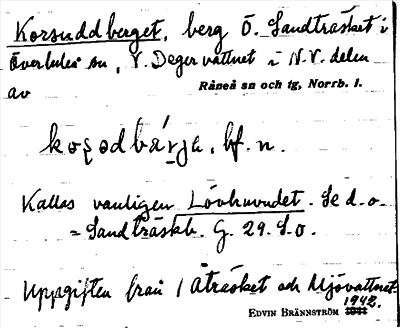 Korsuddberget, berg Ö. Sandträsket i
Överluleå sn, V. Degervattnet i N.V. delen
av Råneå sn och tg, Norrb. l.
kosodbärja, bf. n.
Kallas vanligen Lövhuvudet. Se d.o.
= Sandträskb. G. 29. S.o.
Uppgiften från Åträsket och Mjövattnet
1942.
EDVIN BRÄNNSTRÖM 1941